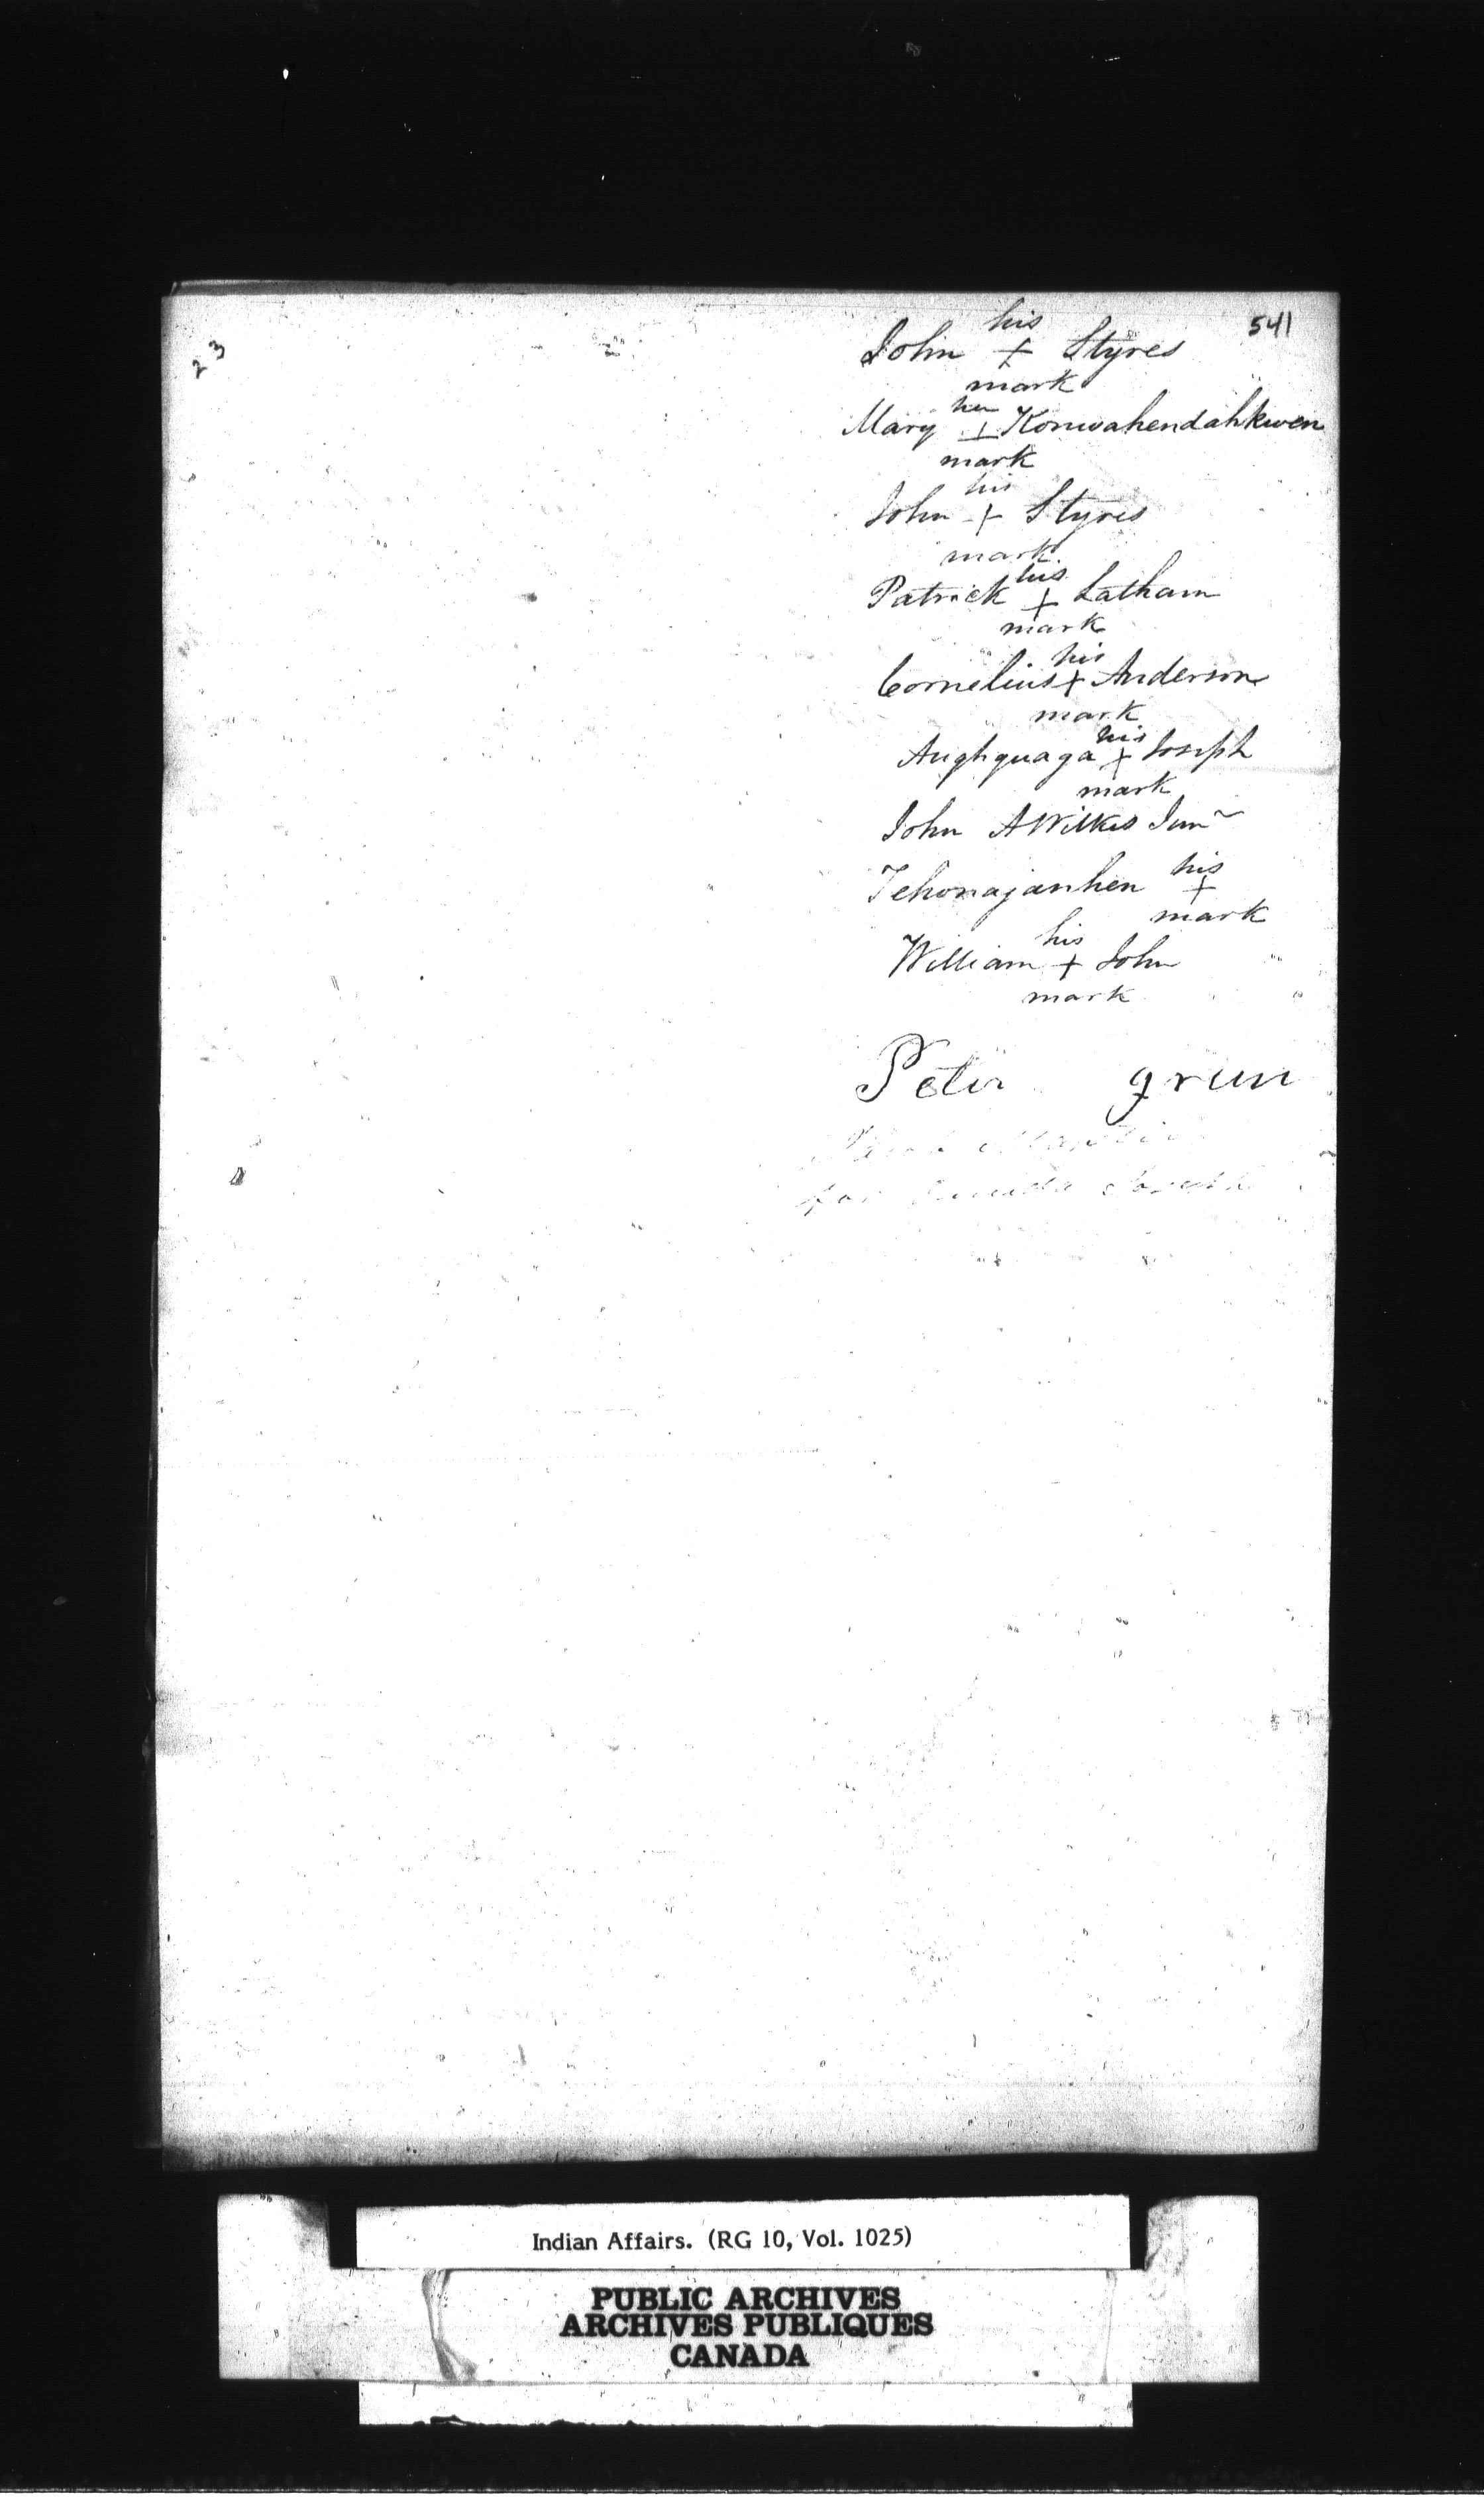 541
23
his
John + Styres
mark
her
Mary + Konwahendahkwen
mark
his
John + Styres
mark
his
Patrick + Latham
mark
his
Cornelius + Anderson
mark
his
Aughquaga + Joseph
mark
John A Wilkes Junr
his
Tehonajanhen +
mark
his
William + John
mark
Peter green
Martin
for Joseph
Indian Affairs. (RG 10, Vol. 1025)
PUBLIC ARCHIVES
ARCHIVES PUBLIQUES
CANADA